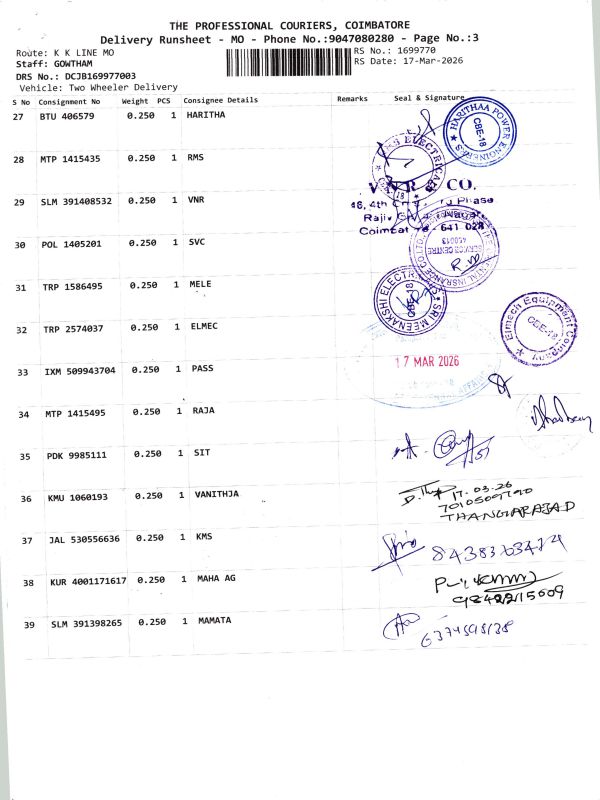 THE PROFESSIONAL COURIERS, COIMBATORE
Delivery Runsheet - MO - Phone No.:9047080280 - Page No.:3
Route: K K LINE MO
RS No.: 1699770
Staff: GOWTHAM
RS Date: 17-Mar-2026
DRS No.: DCJB169977003
Vehicle: Two Wheeler Delivery
S No Consignment No Weight PCS Consignee Details Remarks Seal & Signature
27 BTU 406579 0.250 1 HARITHA
HARITHAA POWER ENGINEERS CBE-18
28 MTP 1415435 0.250 1 RMS
29 SLM 391408532 0.250 1 VNR
VNR & CO.
Phase
641 028
30 POL 1405201 0.250 1 SVC
SERVICE CENTRE
31 TRP 1586495 1 MELE
0.250
SRI MEENAKSHI ELECTRICALS CBE-18
32 TRP 2574037 0.250 1 ELMEC
Elmech Equipment Company CBE-18
33 IXM 509943704 0.250 1 PASS
17 MAR 2026
34 MTP 1415495 0.250 1 RAJA
35 PDK 9985111 0.250 1 SIT
36 KMU 1060193 0.250 1 VANITHJA
17.03.26
THANGARAJAD
37 JAL 530556636 0.250 1 KMS
38 KUR 4001171617 0.250 1 MAHA AG
39 SLM 391398265 0.250 1 MAMATA